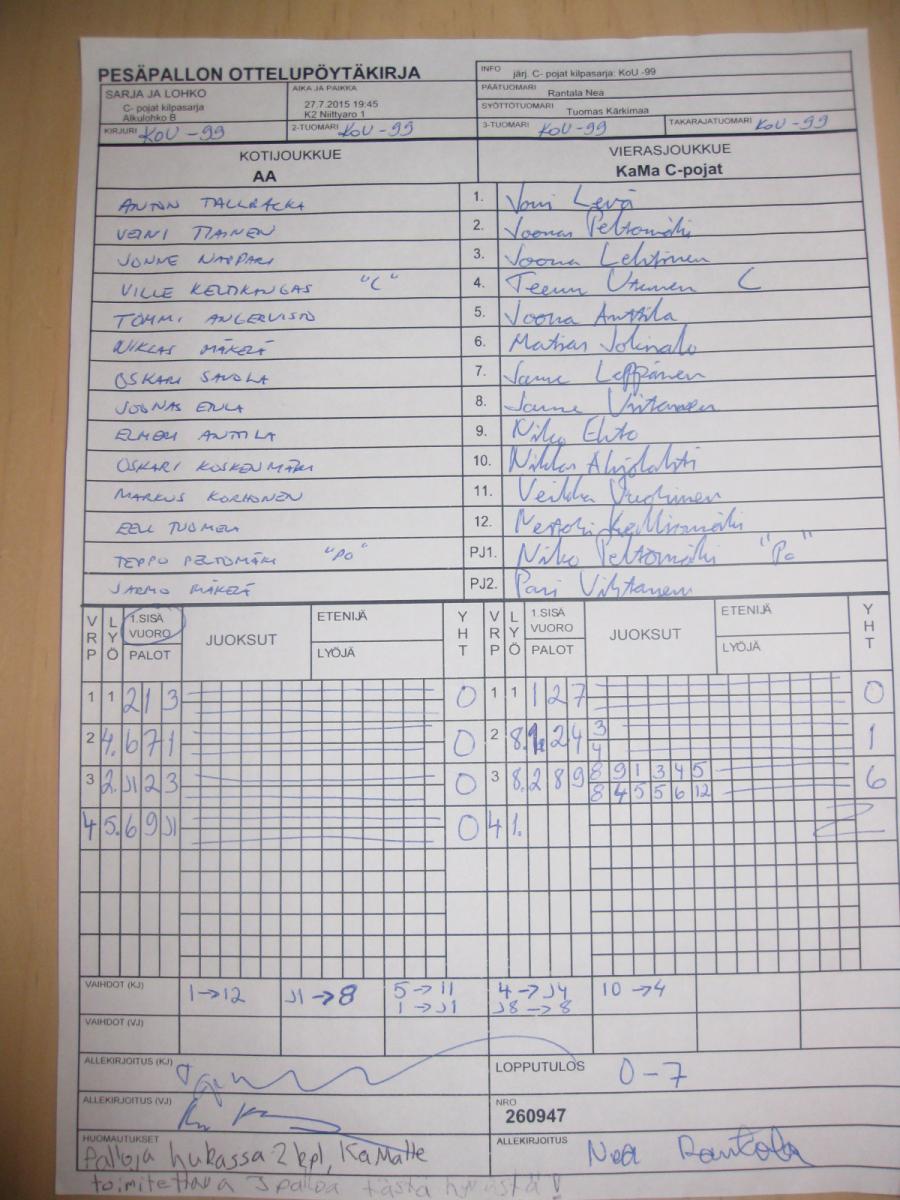 PESÄPALLON OTTELUPÖYTÄKIRJA
INFO järj. C- pojat kilpasarja: KoU -99
SARJA JA LOHKO
C- pojat kilpasarja
Alkulohko B
AIKA JA PAIKKA
27.7.2015 19:45
K2 Niittyaro 1
PÄÄTUOMARI Rantala Nea
SYÖTTÖTUOMARI Tuomas Kärkimaa
KIRJURI KoU -99
2-TUOMARI KoU -99
3-TUOMARI KoU -99
TAKARAJATUOMARI KoU -99
KOTIJOUKKUE
AA
VIERASJOUKKUE
KaMa C-pojat
ANTON TALLBACKA 1. Joni Levä
VEINI TIAINEN 2. Joonas Peltomäki
JONNE NAPPARI 3. Joona Lehtinen
VILLE KELTIKANGAS "C" 4. Teemu C
TOMMI ANGERVISTO 5. Joona Anttila
NIKLAS MÄKELÄ 6. Matias
OSKARI SAVOLA 7. Janne Leppänen
JOONAS EINLA 8. Janne Viitanen
ELMERI ANTTILA 9. Niko Ehto
OSKARI KOSKENMÄKI 10. Niklas
MARKUS KORHONEN 11. Veikka
EELI TUOMELA 12.
TEPPO PELTOMÄKI "PO" PJ1. Niko Peltomäki "Po"
JARMO MÄKELÄ PJ2. Pasi
VRP LYÖ 1.SISÄ VUORO PALOT JUOKSUT ETENIJÄ LYÖJÄ YHT VRP LYÖ 1.SISÄ VUORO PALOT JUOKSUT ETENIJÄ LYÖJÄ YHT
1 1 2 1 3 0 1 1 1 2 7 0
2 4. 6 7 1 0 2 8. 2 4 3 1
4
3 2. J1 2 3 0 3 8. 2 8 9 8 9 1 3 4 5 6
8 4 5 5 6 12
4 5. 6 9 J1 0 4 1.
VAIHDOT (KJ) 1→12 J1→8 5→11 4→J4 10→4
1→J1 J8→8
VAIHDOT (VJ)
ALLEKIRJOITUS (KJ)
LOPPUTULOS 0-7
ALLEKIRJOITUS (VJ)
NRO
260947
HUOMAUTUKSET Palloja hukassa 2 kpl, KaMalle
toimitettava 3 palloa tästä hyvästä!
ALLEKIRJOITUS Nea Rantala